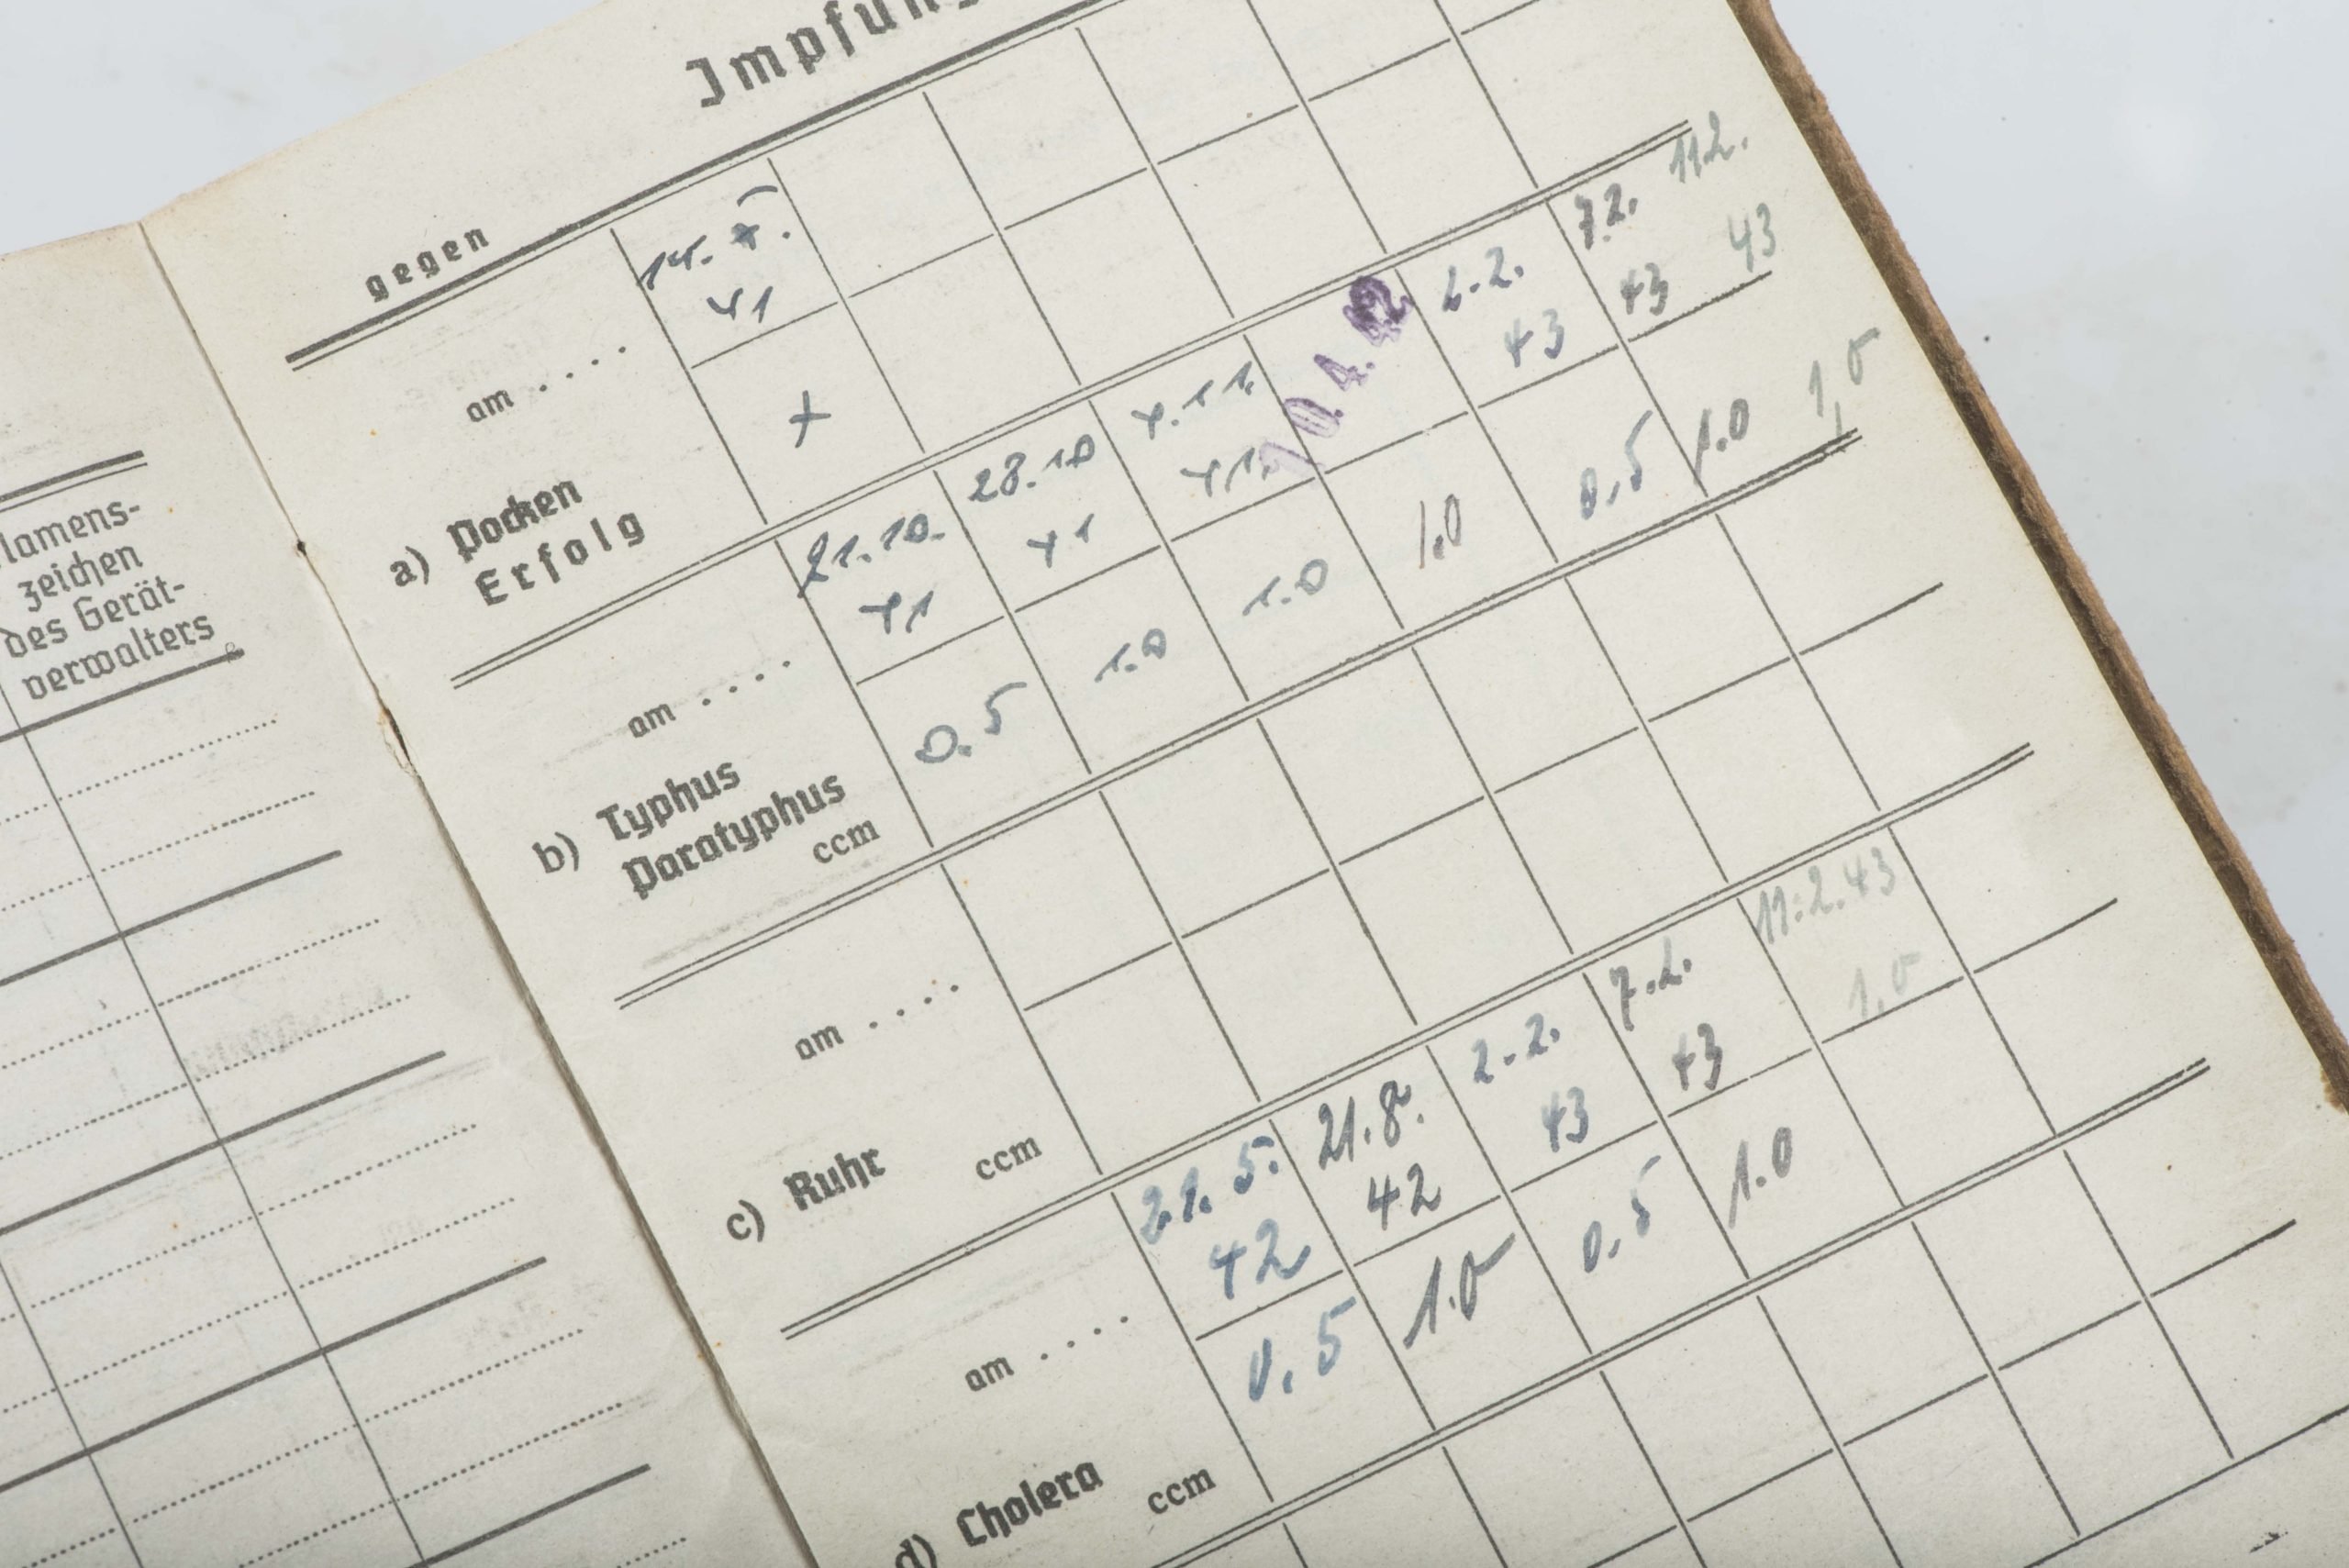 Impfun
gegen
am . . . . 14. 7.
41
a) Pocken
Erfolg +
am . . . . 21.10. 28.10 4.11. 10.4.42 2.2. 7.2. 11.2.
41 41 41. 43 43 43
b) Typhus
Paratyphus
ccm 0.5 1.0 1.0 1.0 0,5 1.0 1,0
am . . . .
c) Ruhr ccm
am . . . . 21.5. 21.8. 2.2. 7.2. 11.2.43
42 42 43 43
d) Cholera ccm 0.5 1.0 0.5 1.0 1.0
lamens-
zeichen
des Gerät-
verwalters